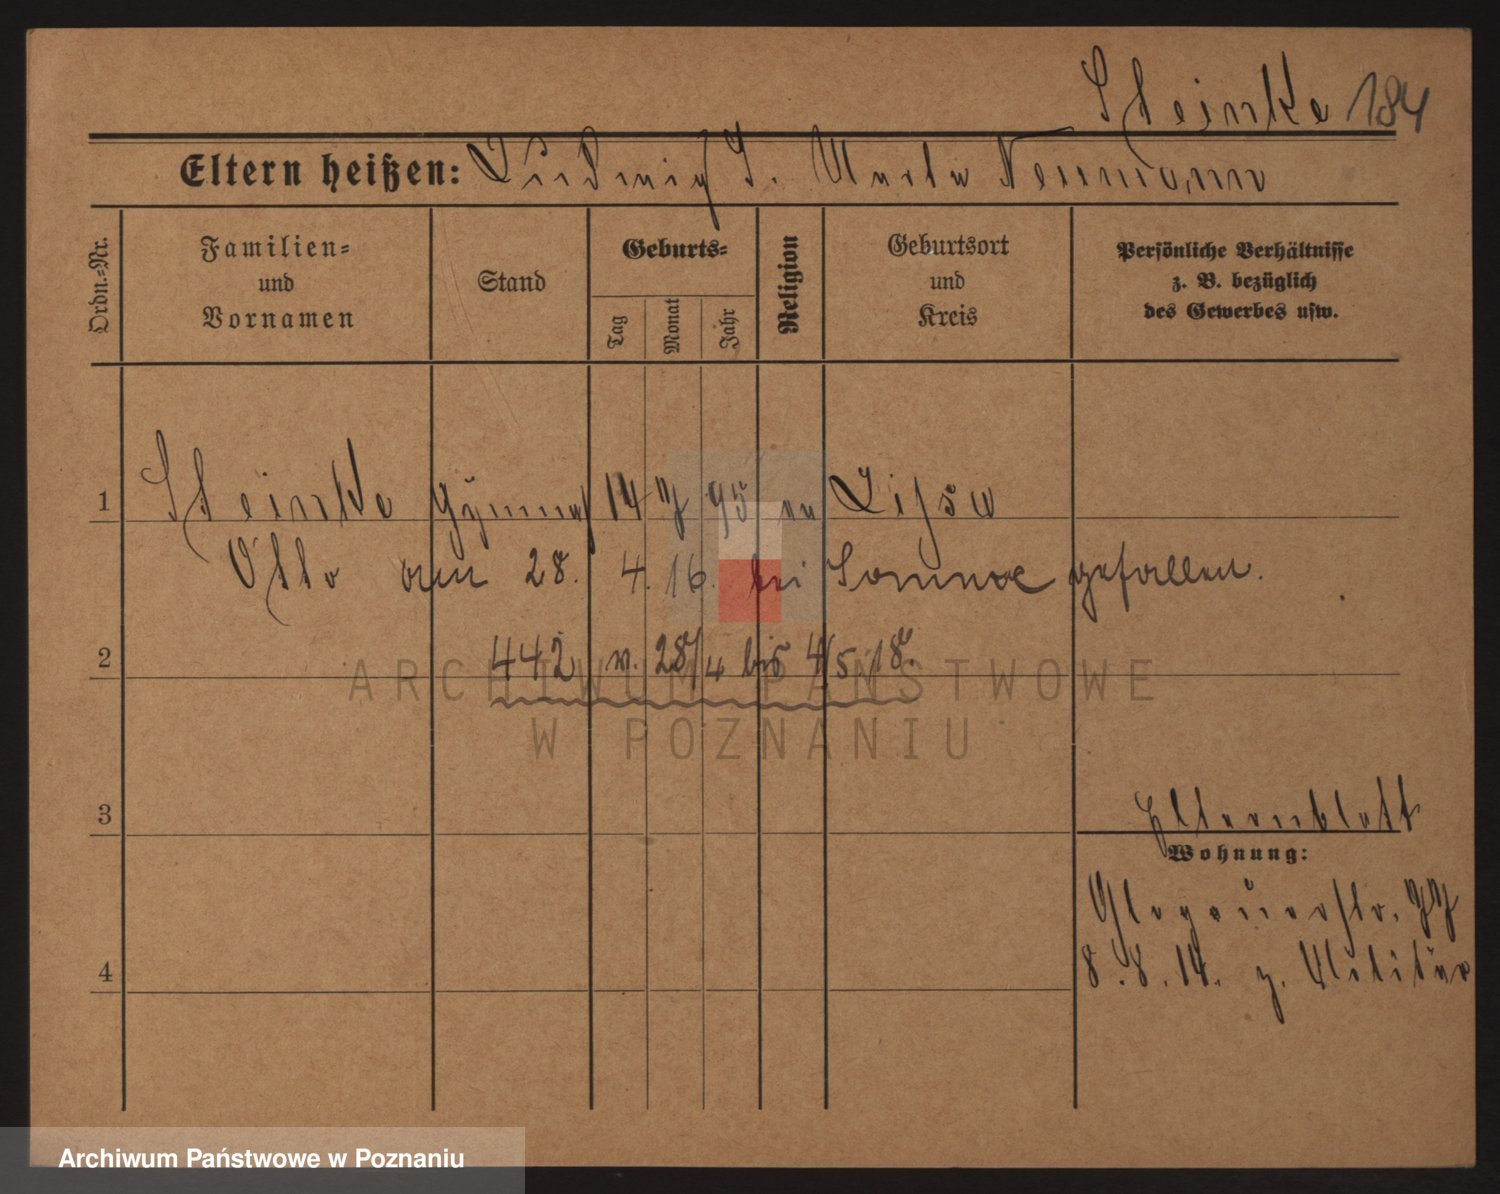 Steinke 184
Eltern heißen: Ludwig J. Marta Neumann
Ordn.=Nr.
Familien=
und
Vornamen
Stand
Geburts=
Tag
Monat
Jahr
Religion
Geburtsort
und
Kreis
Persönliche Verhältnisse
z. B. bezüglich
des Gewerbes usw.
1 Steinke Gymnas 14 7 95 ev Lissa
Otto am 28. 4. 16. bei gefallen.
2 442 v. 28/4 bis 4/5 18.
ARCHIWUM PAŃSTWOWE
W POZNANIU
3 Elternblatt
Wohnung:
Glogauerstr. 77
4 8. 8. 14. z. Militär
Archiwum Państwowe w Poznaniu